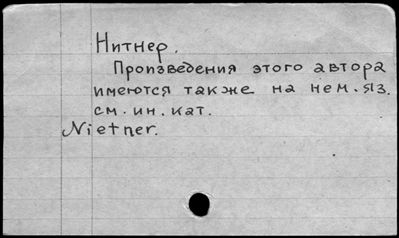 Нитнер.
Произведения этого автора
имеются также на нем. яз.
см. ин. кат.
Nietner.